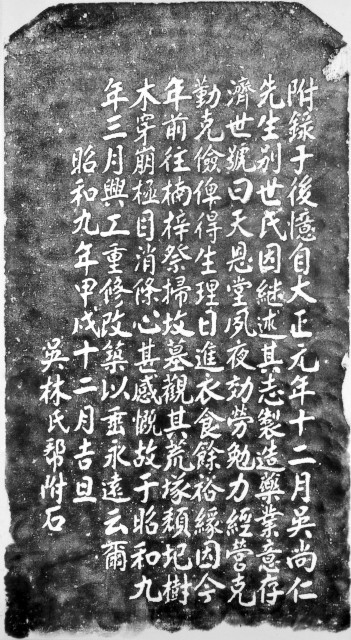 附錄于後憶自大正元年十二月吳尚仁
先生別世氏因継述其志製造藥業意存
濟世號曰天恩堂夙夜効勞勉力經營克
勤克儉俾得生理日進衣食餘裕緣因今
年前往楠梓祭掃坟墓觀其荒塚頹圯樹
木穿崩極目消條心甚感慨故于昭和九
年三月興工重修改築以垂永遠云爾
昭和九年甲戌十二月吉旦
吳林氏帮附石